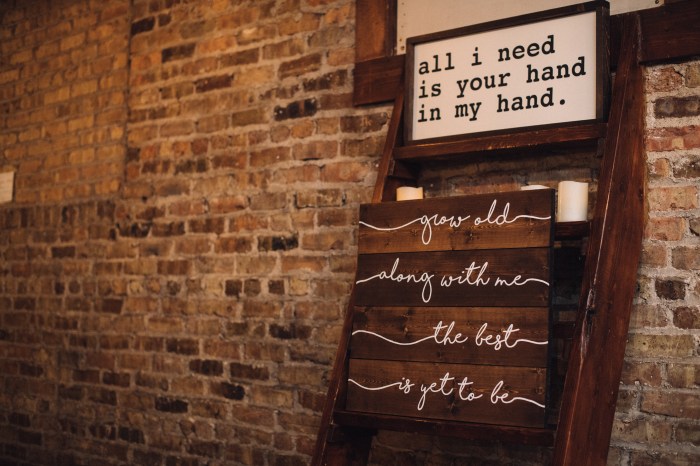 all i need
is your hand
in my hand.
grow old
along with me
the best
is yet to be